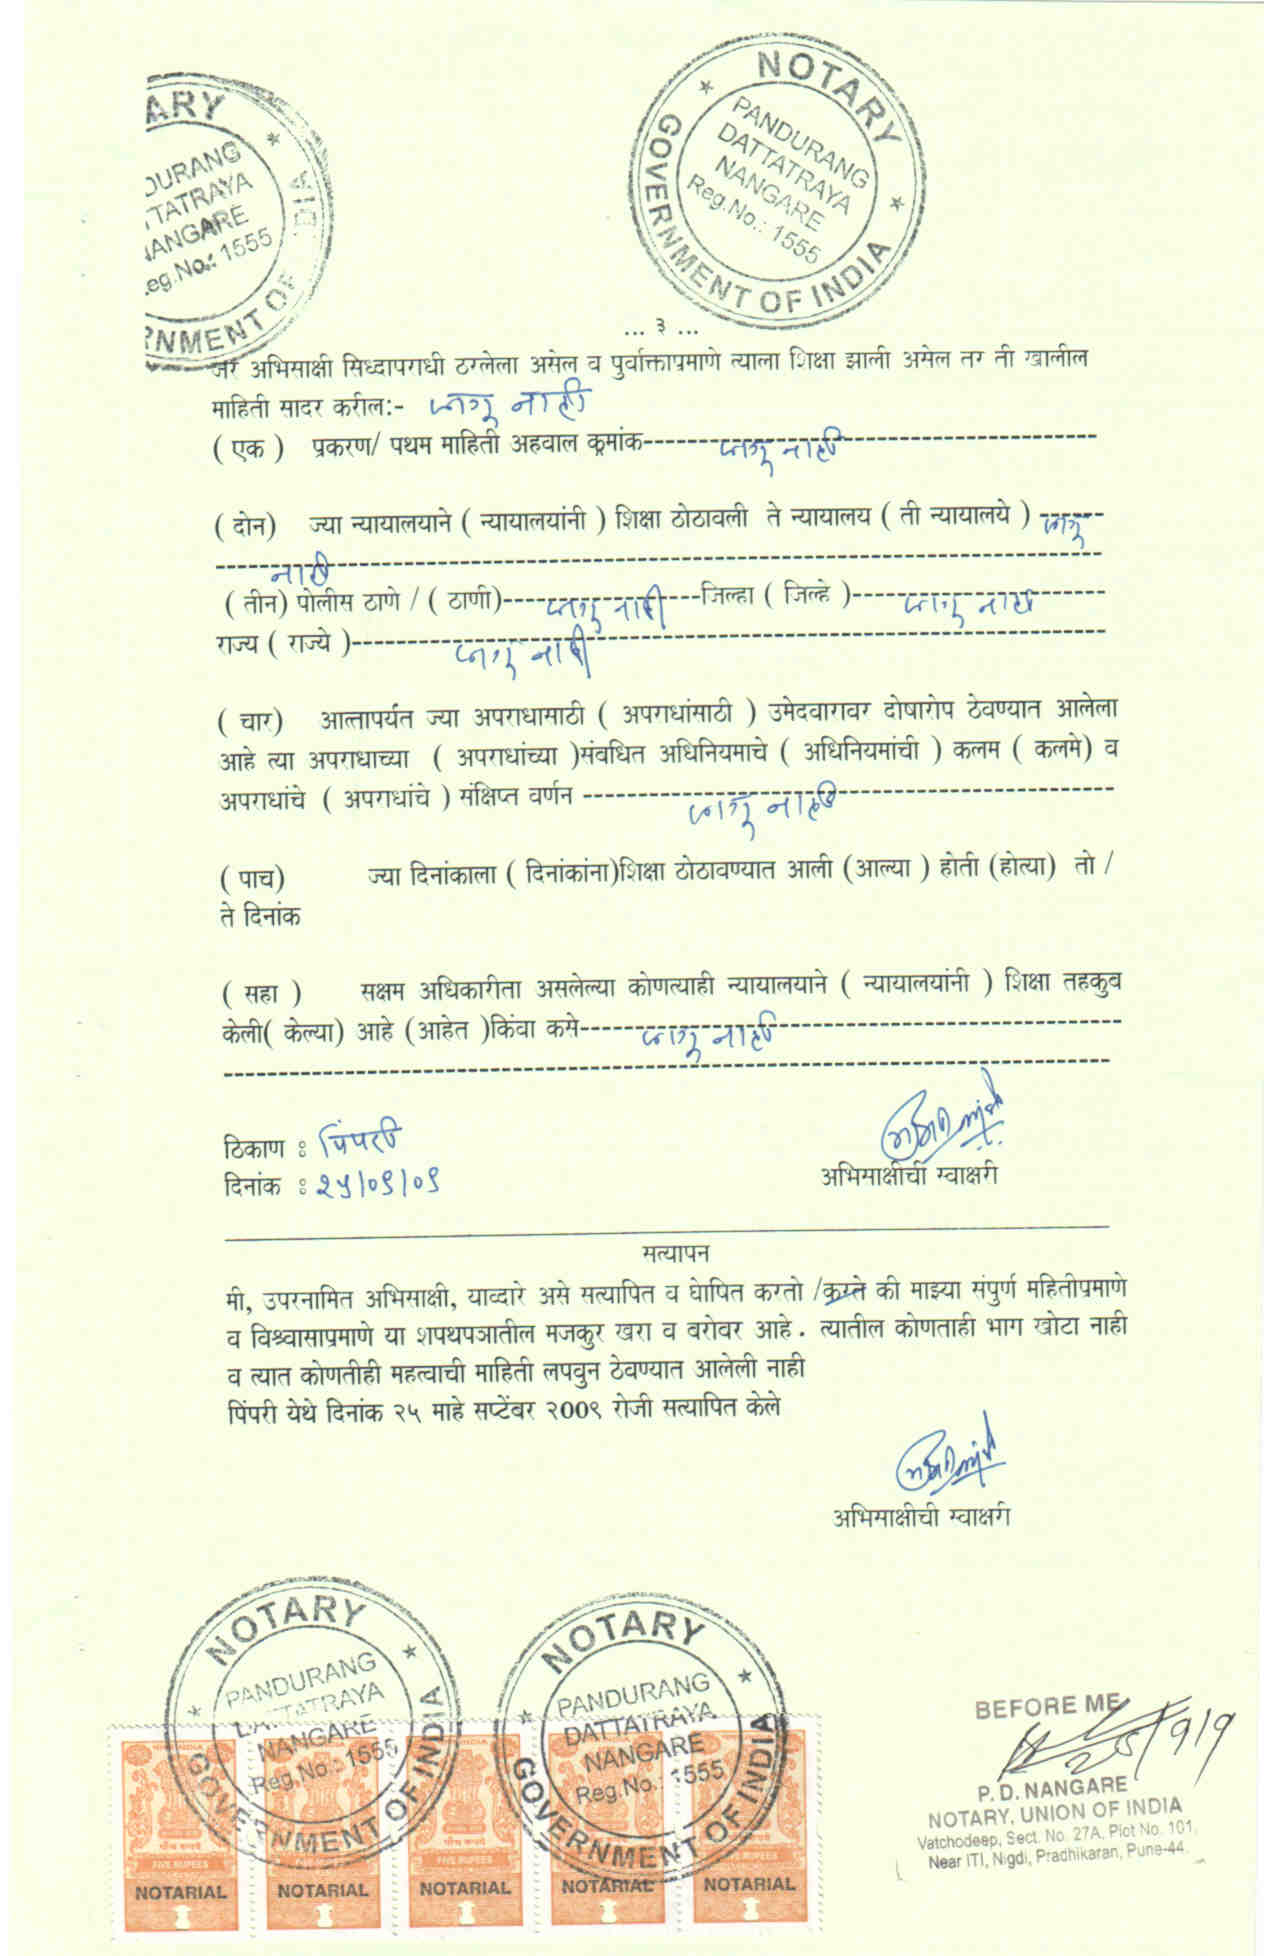 ARY
DURANG
TTATRAYA
NANGARE
eg.No.: 1555
RNMENT OF INDIA
NOTARY
PANDURANG
DATTATRAYA
NANGARE
Reg.No.: 1555
GOVERNMENT OF INDIA
... ३ ...
जर अभिसाक्षी सिध्दापराधी ठरलेला असेल व पुर्वाक्ताप्रमाणे त्याला शिक्षा झाली असेल तर ती खालील
माहिती सादर करील:- लागू नाही
( एक ) प्रकरण/ पथम माहिती अहवाल क्रमांक------ लागू नाही ------
( दोन) ज्या न्यायालयाने ( न्यायालयांनी ) शिक्षा ठोठावली ते न्यायालय ( ती न्यायालये ) ------ लागू
नाही
( तीन) पोलीस ठाणे / ( ठाणी)------ लागू नाही ------जिल्हा ( जिल्हे )------ लागू नाही
राज्य ( राज्ये )------ लागू नाही ------
( चार) आत्तापर्यंत ज्या अपराधासाठी ( अपराधांसाठी ) उमेदवारावर दोषारोप ठेवण्यात आलेला
आहे त्या अपराधाच्या ( अपराधांच्या )संवधित अधिनियमाचे ( अधिनियमांची ) कलम ( कलमे) व
अपराधांचे ( अपराधांचे ) संक्षिप्त वर्णन ------ लागू नाही ------
( पाच) ज्या दिनांकाला ( दिनांकांना)शिक्षा ठोठावण्यात आली (आल्या ) होती (होत्या) तो /
ते दिनांक
( सहा ) सक्षम अधिकारीता असलेल्या कोणत्याही न्यायालयाने ( न्यायालयांनी ) शिक्षा तहकुब
केली( केल्या) आहे (आहेत )किंवा कसे------ लागू नाही ------
ठिकाण : पिंपरी
दिनांक : २५/०९/०९
अभिसाक्षीची स्वाक्षरी
सत्यापन
मी, उपरनामित अभिसाक्षी, याव्दारे असे सत्यापित व घोषित करतो /करते की माझ्या संपुर्ण महितीप्रमाणे
व विश्र्वासाप्रमाणे या शपथपत्रातील मजकुर खरा व बरोबर आहे. त्यातील कोणताही भाग खोटा नाही
व त्यात कोणतीही महत्वाची माहिती लपवुन ठेवण्यात आलेली नाही
पिंपरी येथे दिनांक २५ माहे सप्टेंबर २००९ रोजी सत्यापित केले
अभिसाक्षीची स्वाक्षरी
NOTARY
PANDURANG
DATTATRAYA
NANGARE
Reg.No.: 1555
GOVERNMENT OF INDIA
NOTARY
PANDURANG
DATTATRAYA
NANGARE
Reg.No.: 1555
GOVERNMENT OF INDIA
FIVE RUPEES
NOTARIAL NOTARIAL NOTARIAL NOTARIAL NOTARIAL
BEFORE ME
25/9/9
P.D. NANGARE
NOTARY, UNION OF INDIA
Vatchodeep, Sect. No. 27A, Plot No. 101,
Near ITI, Nigdi, Pradhikaran, Pune-44.